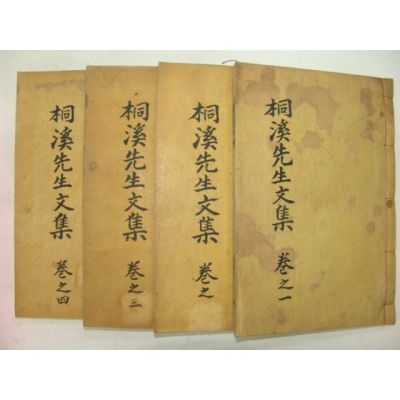 桐溪先生文集 卷之一
桐溪先生文集 卷之
桐溪先生文集 卷之三
桐溪先生文集 卷之四